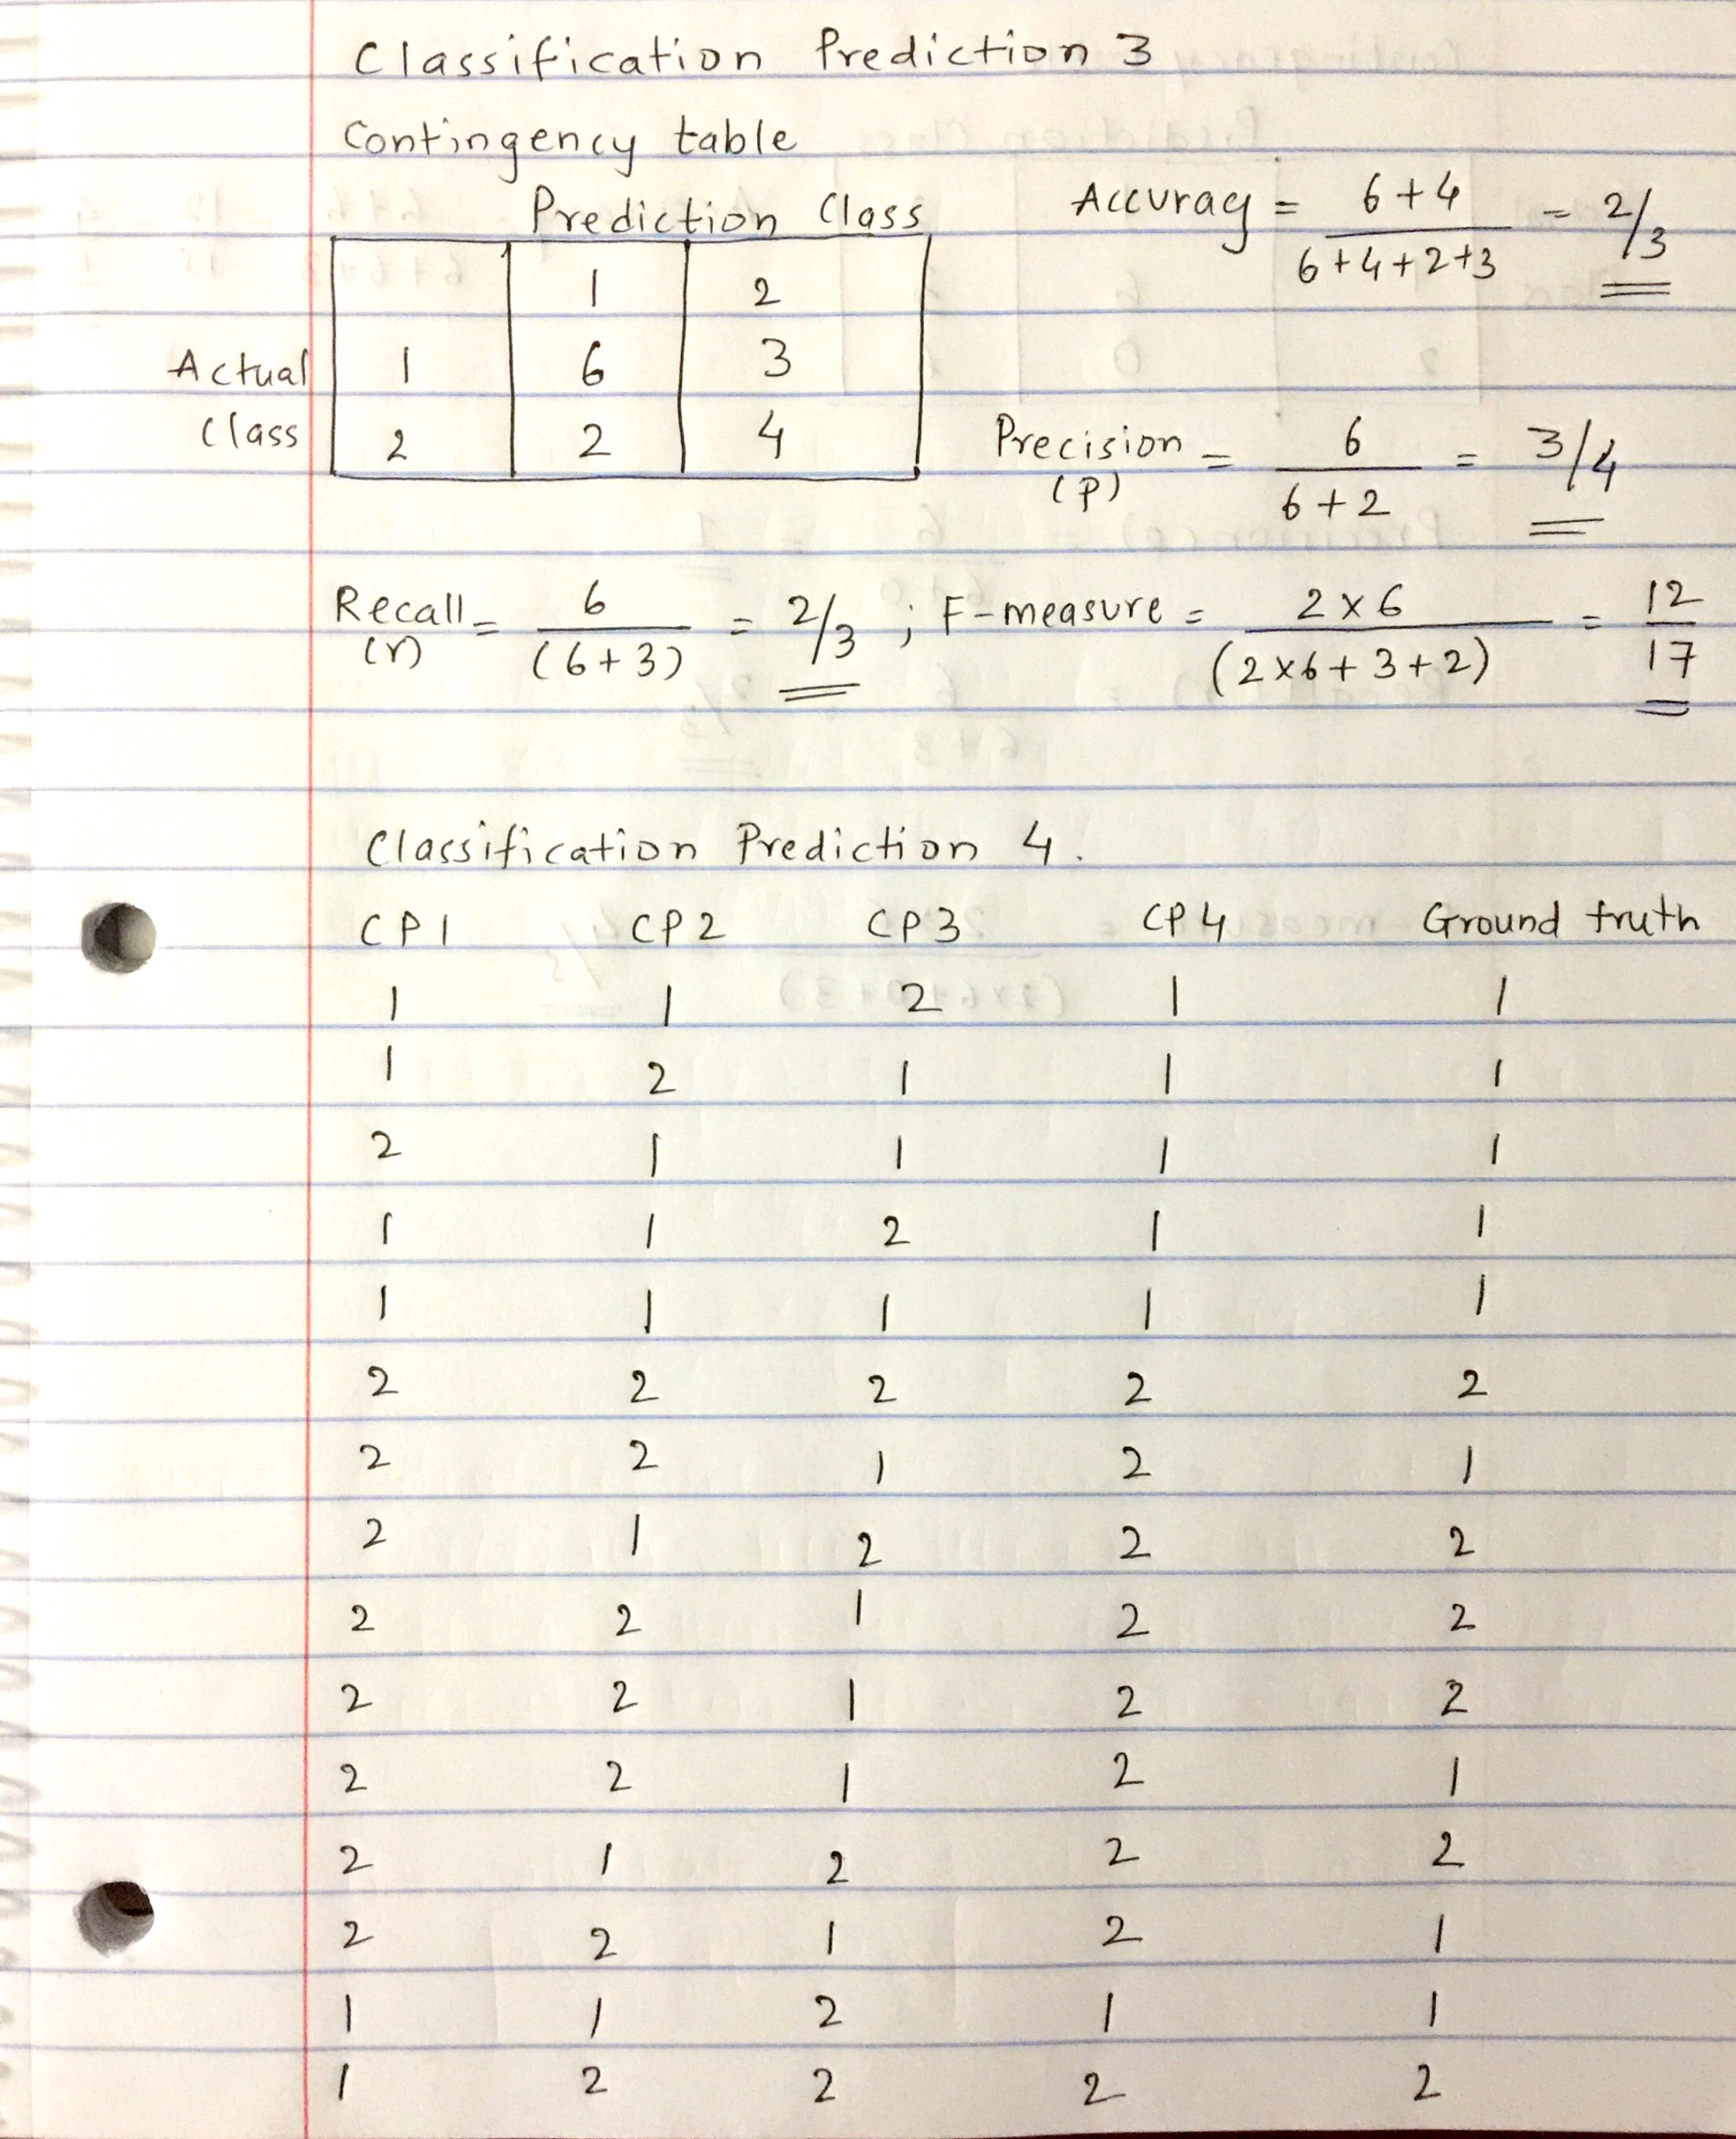 Classification Prediction 3
Contingency table
Prediction Class
1 2
Actual 1 6 3
Class 2 2 4
Accuracy = 6+4 / 6+4+2+3 = 2/3
Precision (P) = 6 / 6+2 = 3/4
Recall (r) = 6 / (6+3) = 2/3 ; F-measure = 2x6 / (2x6+3+2) = 12 / 17
Classification Prediction 4.
CP1 CP2 CP3 CP4 Ground truth
1 1 2 1 1
1 2 1 1 1
2 1 1 1 1
1 1 2 1 1
1 1 1 1 1
2 2 2 2 2
2 2 1 2 1
2 1 2 2 2
2 2 1 2 2
2 2 1 2 2
2 2 1 2 1
2 1 2 2 2
2 2 1 2 1
1 1 2 1 1
1 2 2 2 2